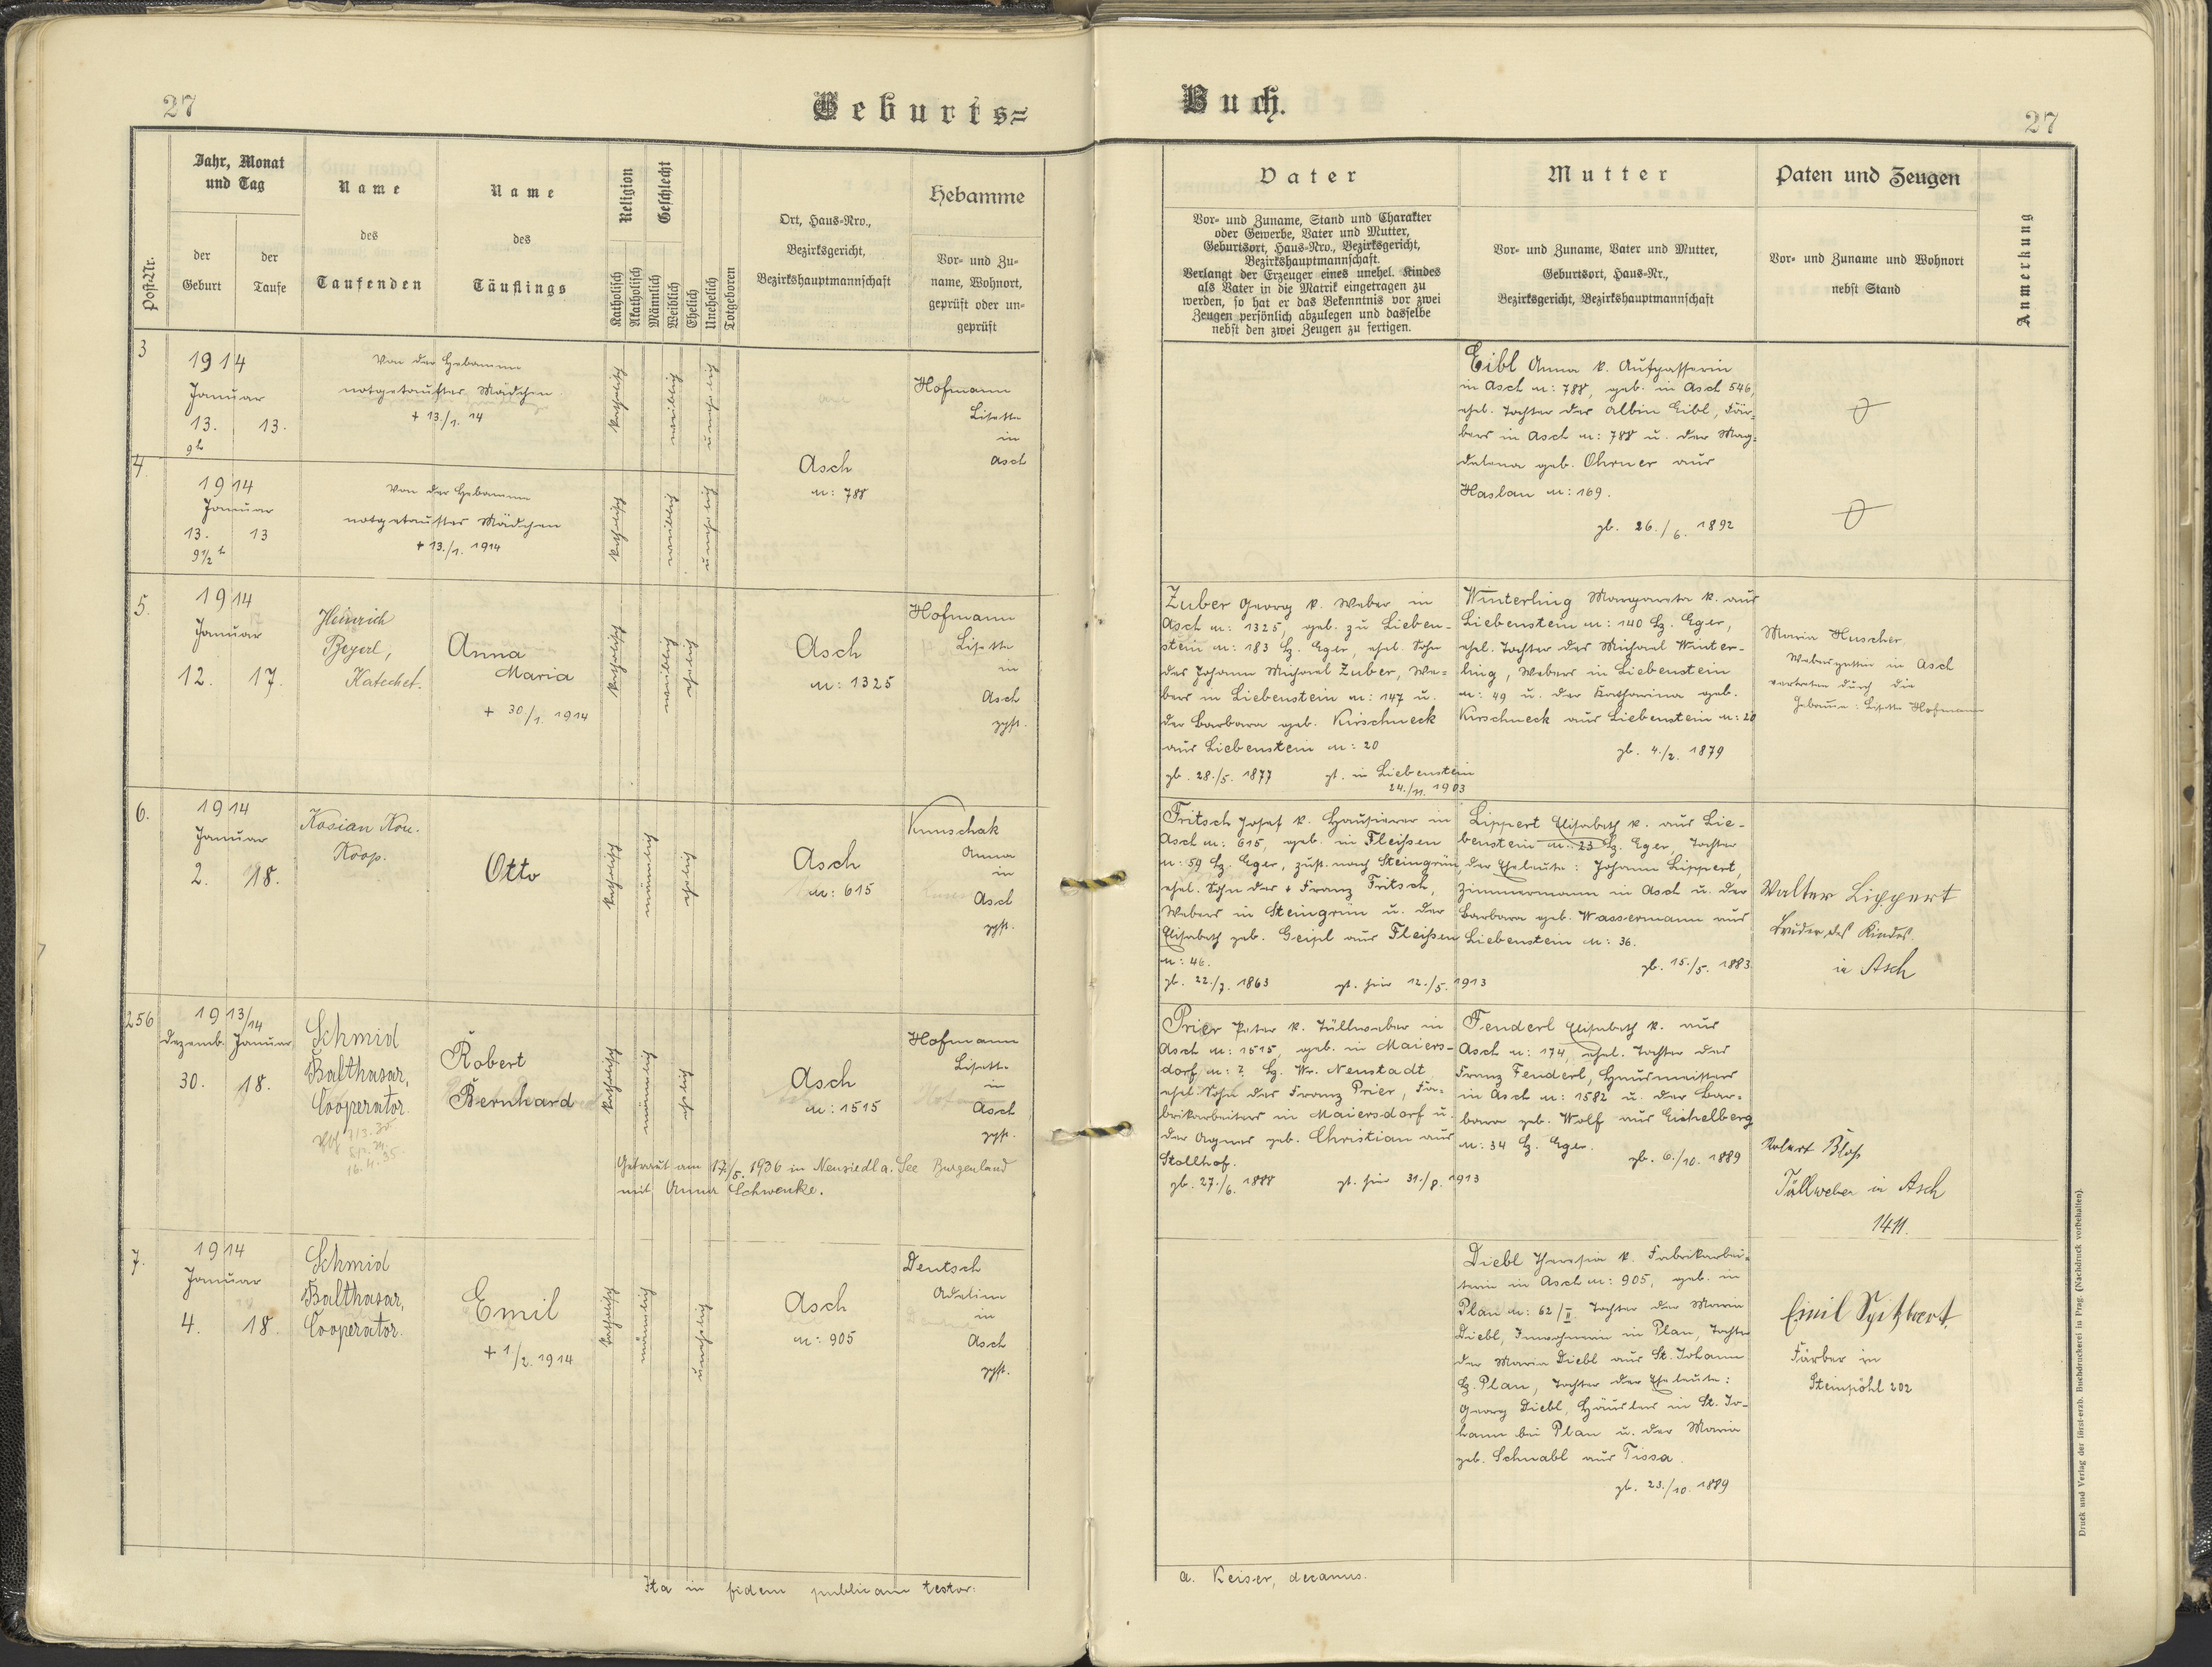 27
Geburts=
Jahr, Monat
und Tag
Post-Nr.
der
Geburt
der
Taufe
Name
des
Taufenden
Name
des
Täuflings
Religion
Geschlecht
Katholisch
Akatholisch
Männlich
Weiblich
Ehelich
Unehelich
Totgeboren
Ort, Haus-Nro.,
Bezirksgericht,
Bezirkshauptmannschaft
Hebamme
Vor- und Zu-
name, Wohnort,
geprüft oder un-
geprüft
3
1914
Januar
13. 13.
9h
Von der Hebamme
notgetauftes Mädchen
+ 13./1. 14
katholisch
weiblich
unehelich
Hofmann
Lisette
in
Asch
4.
1914
Januar
13. 13
9 1/2 h
Von der Hebamme
notgetauftes Mädchen
+ 13./1. 1914
katholisch
weiblich
unehelich
Asch
n: 788
5.
1914
Januar
12. 17.
Heinrich
Beyerl,
Katechet.
Anna
Maria
+ 30./1. 1914
katholisch
weiblich
ehelich
Asch
n: 1325
Hofmann
Lisette
in
Asch
gpft.
6.
1914
Januar
2. 18.
Kosian Kon.
Koop.
Otto
katholisch
männlich
ehelich
Asch
n: 615
Knuschak
Anna
in
Asch
gpft.
256
1913/14
Dezemb. Januar
30. 18.
Schmid
Balthasar,
Cooperator.
16. 4. 35
Robert
Bernhard
katholisch
männlich
ehelich
Asch
n: 1515
Hofmann
Lisette
in
Asch
gpft.
Getraut am 17./5. 1936 in Neusiedl a. See Burgenland
mit Anna Schwenke.
7.
1914
Januar
4. 18.
Schmid
Balthasar,
Cooperator.
Emil
+ 1/2. 1914
katholisch
männlich
unehelich
Asch
n: 905
Deutsch
Adeline
in
Asch
gpft.
Ita in fidem publicam testor:
Buch.
27
Vater
Vor- und Zuname, Stand und Charakter
oder Gewerbe, Vater und Mutter,
Geburtsort, Haus-Nro., Bezirksgericht,
Bezirkshauptmannschaft.
Verlangt der Erzeuger eines unehel. Kindes
als Vater in die Matrik eingetragen zu
werden, so hat er das Bekenntnis vor zwei
Zeugen persönlich abzulegen und dasselbe
nebst den zwei Zeugen zu fertigen.
Mutter
Vor- und Zuname, Vater und Mutter,
Geburtsort, Haus-Nr.,
Bezirksgericht, Bezirkshauptmannschaft
Paten und Zeugen
Vor- und Zuname und Wohnort
nebst Stand
Anmerkung
Eibl Anna k. Aufpasserin
in Asch n: 788, geb. in Asch 546,
ehel. Tochter des Albin Eibl, Fär-
bers in Asch n: 788 u. der Mag-
dalena geb. Ohrner aus
Haslau n: 169.
gb. 26./6. 1892
Zuber Georg k. Weber in
Asch n: 1325, geb. zu Lieben-
stein n: 183 Bz. Eger, ehel. Sohn
des Johann Michael Zuber, We-
bers in Liebenstein n: 147 u.
der Barbara geb. Kirschneck
aus Liebenstein n: 20
gb. 28./5. 1877 gt. in Liebenstein
24./11. 1903
Winterling Margareta k. aus
Liebenstein n: 140 Bz. Eger,
ehel. Tochter des Michael Winter-
ling, Webers in Liebenstein
n: 49 u. der Katharina geb.
Kirschneck aus Liebenstein n: 20
gb. 4./2. 1879
Maria Huscher
Webersgattin in Asch
vertreten durch die
Hebamme: Lisette Hofmann
Fritsch Josef k. Hausierer in
Asch n: 615, geb. in Fleißen
n: 59 Bz. Eger, zust. nach Steingrün,
ehel. Sohn des + Franz Fritsch,
Webers in Steingrün u. der
Elisabeth geb. Geipl aus Fleißen
n: 46.
gb. 22./7. 1863 gt. hier 12./5. 1913
Lippert Elisabeth k. aus Lie-
benstein n: 23 Bz. Eger, Tochter
der Eheleute: Johann Lippert,
Zimmermann in Asch u. der
Barbara geb. Wassermann aus
Liebenstein n: 36.
gb. 15./5. 1883.
Walter Lippert
Bruder des Kindes
in Asch
Prier Peter k. Tüllweber in
Asch n: 1515, geb. in Maiers-
dorf n: ? Bz. Wr. Neustadt
ehel. Sohn des Franz Prier, Fa-
brikarbeiters in Maiersdorf u.
der Agnes geb. Christian aus
Stollhof.
gb. 27./6. 1888 gt. hier 31./8. 1913
Fenderl Elisabeth k. aus
Asch n: 174, ehel. Tochter des
Franz Fenderl, Hausmeisters
in Asch n: 1582 u. der Bar-
bara geb. Wolf aus Eichelberg
n: 34 Bz. Eger.
gb. 6./10. 1889
Robert Bloß
Tüllweber in Asch
1411.
Diebl Theresia k. Fabrikarbei-
terin in Asch n: 905, geb. in
Plan n: 62/II Tochter der Maria
Diebl, Inwohnerin in Plan, Tochter
der Maria Diebl aus St. Johann
Bz. Plan, Tochter der Eheleute:
Georg Diebl, Häusler in St. Jo-
hann bei Plan u. der Maria
geb. Schnabl aus Tissa.
gb. 23./10. 1889
Emil Spitzbart
Färber in
Steinpöhl 202
A. Keiser, decanus.
Druck und Verlag der fürst-erzb. Buchdruckerei in Prag. (Nachdruck vorbehalten).